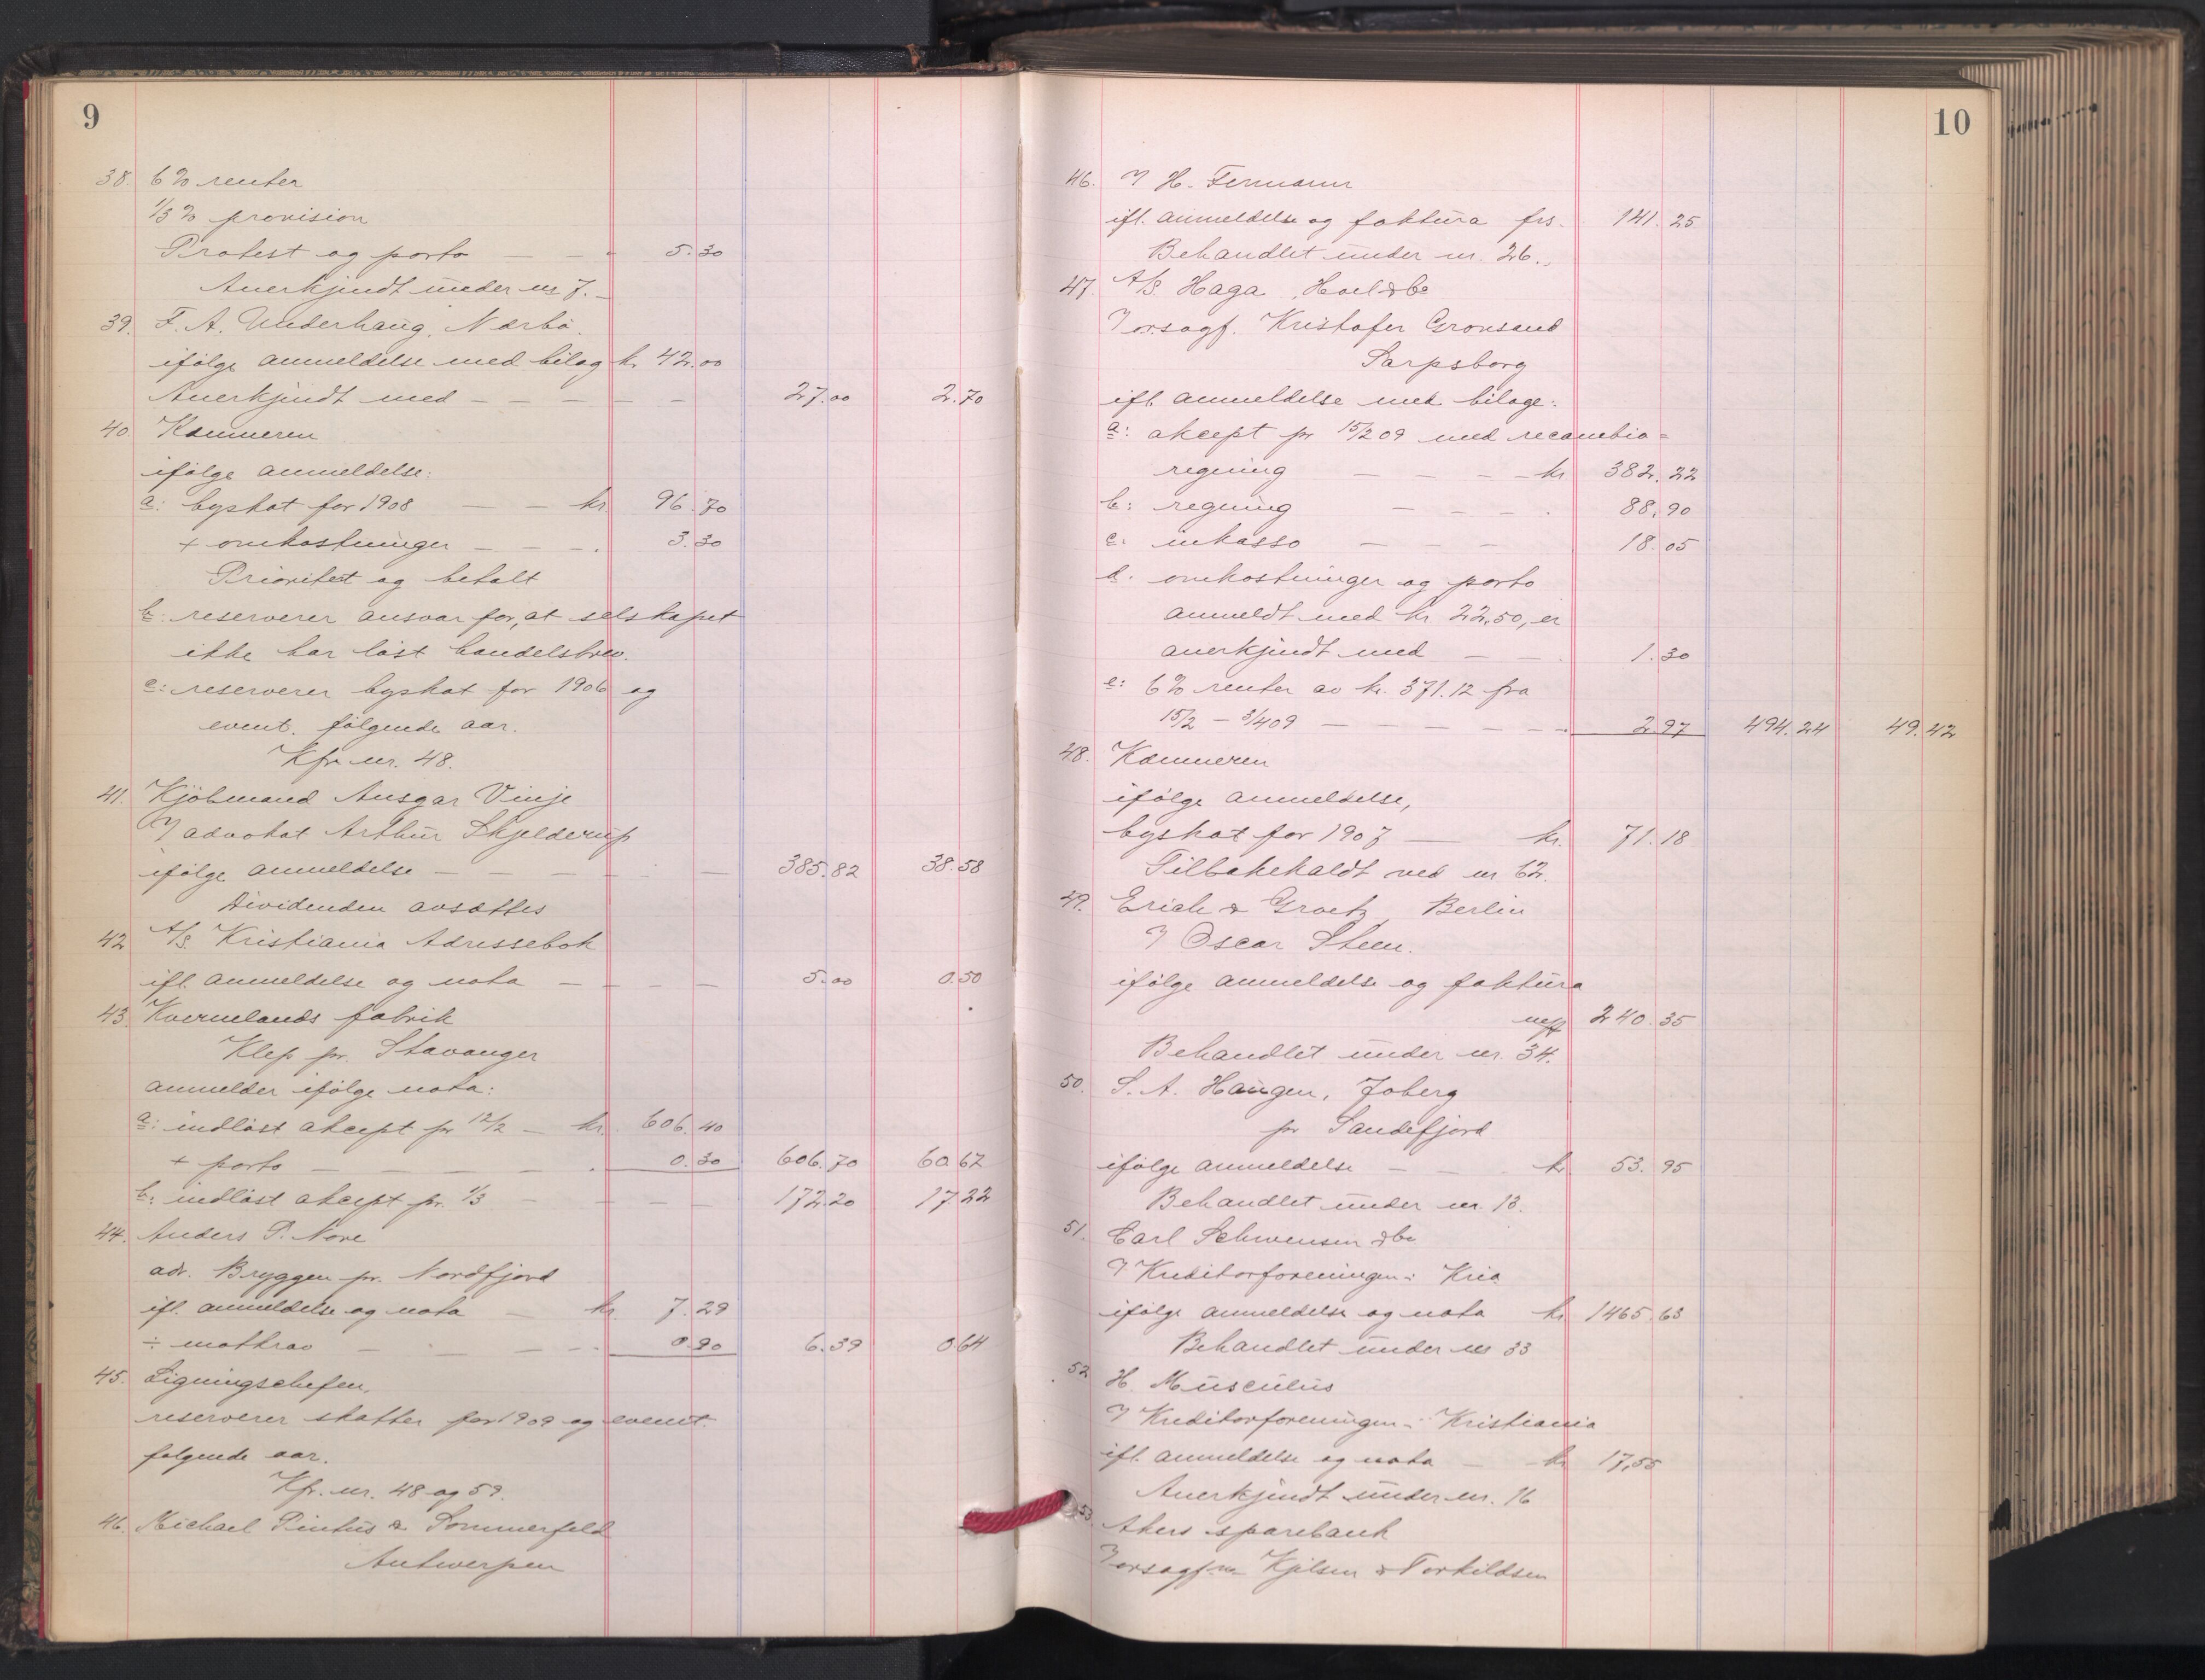 9
38. 6% renter
1/3% provision
Protest og porto — — - 5.30
Anerkjendt under nr 7.
39. F. A. Underhaug, Nærbö.
ifölge anmeldelse med bilag kr 42.00
Anerkjendt med — — — — — 27.00 2.70
40. Kæmneren
ifölge anmeldelse:
a: byskat for 1908 — — kr 96.70
+ omkostninger — — . 3.30
Prioritet og betalt
b: reserverer ansvar for, at selskapet
ikke har löst handelsbrev.
c: reserverer byskat for 1906 og
event. fölgende aar.
Kfr nr. 48.
41. Kjöbmand Ansgar Vinje
v/ advokat Arthur Skjelderup
ifölge anmeldelse — — — — — 385.82 38.58
Dividenden avsættes
42. A/S. Kristiania Adressebok
ifl. anmeldelse og nota — — — — 5.00 0.50
43. Kvernelands fabrik
Klep pr. Stavanger
anmelder ifölge nota:
a: indlöst akcept pr 12/2 — kr. 606.40
+ porto — — — — . 0.30 606.70 60.67
b: indlöst akcept pr. 1/3 - — — — 172.20 17.22
44. Anders P. Nore
adr. Bryggen pr. Nordfjord
ifl. anmeldelse og nota — kr. 7.29
÷ motkrav — - — — 0.90 6.39 0.64
45. Ligningschefen,
reserverer skatter for 1909 og event.
følgende aar.
Kfr. nr. 48 og 59.
46. Michael Pintus & Sommerfeld
Antwerpen
10
46. v/ H. Fermann
ifl. anmeldelse og faktura frs. 141.25
Behandlet under nr. 26.
47. A/S. Haga, Hoel & Co
v/ orsagf. Kristofer Gronsand
Sarpsborg
ifl. anmeldelse med bilage:
a: akcept pr 15/2 09 med recambio=
regning — — — — kr 382.22
b: regning — — — . 88.90
c: inkasso — — — 18.05
d. omkostninger og porto
anmeldt med kr 22,50, er
anerkjendt med — — . 1.30
e: 6% renter av kr. 371.12 fra
15/2 — 3/4 09 — — — — — 2.97 494.24 49.42
48. Kæmneren
ifölge anmeldelse,
byskat for 1907 — kr. 71.18
Tilbakekaldt ved nr 62.
49. Erich & Graetz, Berlin
v/ Oscar Steen.
ifölge anmeldelse og faktura
240.35
Behandlet under nr. 34.
50. S. A. Haugen, Joberg
pr Sandefjord
ifölge anmeldelse — — . kr 53.95
Behandlet under nr. 13.
51. Carl Schwensen & Co
v/ Kreditorforeningen i Kria
ifölge anmeldelse og nota kr 1465.63
Behandlet under nr 33
52. H. Musculus
v/ Kreditorforeningen i Kristiania
ifl. anmeldelse og nota — kr 17,55
Anerkjendt under nr. 16
53. Akers sparebank
v/ orsagf.ne Kjelsen & Torkildsen